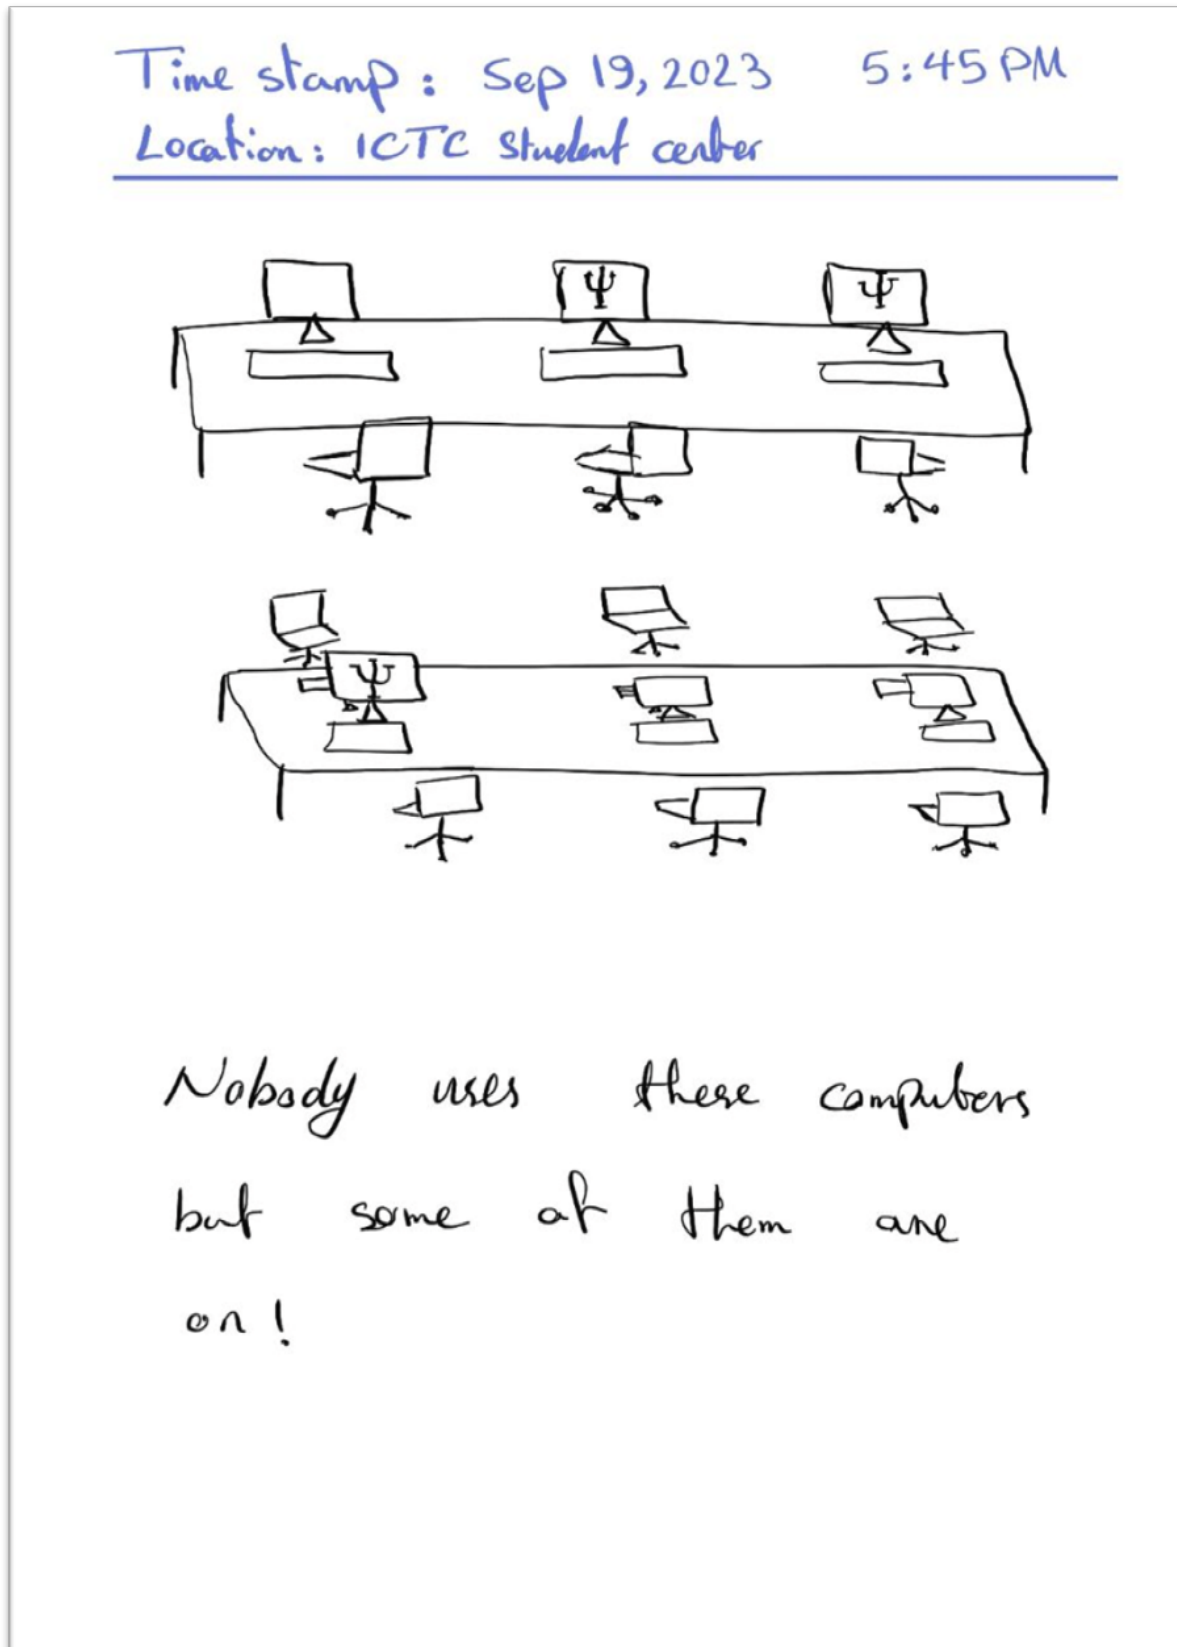 Time stamp: Sep 19, 2023 5:45 PM
Location: ICTC student center
Ψ Ψ
Ψ
Nobody uses these computers
but some of them are
on!